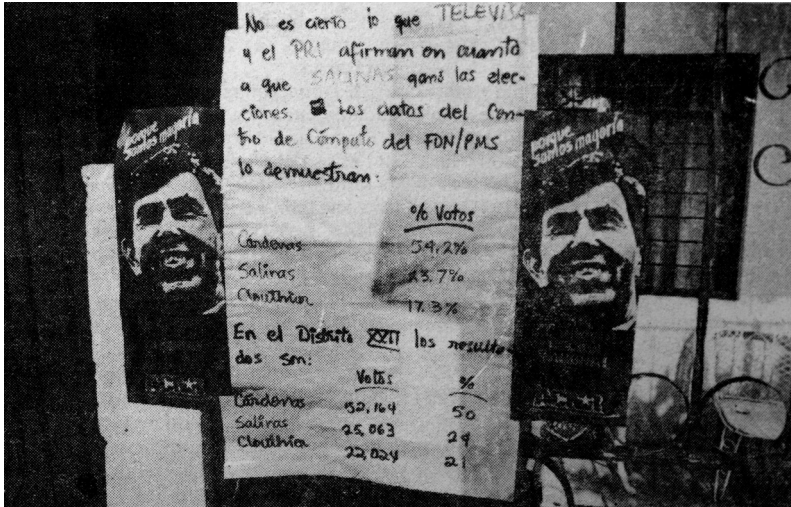 No es cierto lo que TELEVISA
y el PRI afirman en cuanto
a que SALINAS ganó las elec-
ciones. Los datos del Cen-
tro de Cómputo del FDN/PMS
lo demuestran:
% Votos
Cárdenas 54.2%
Salinas 23.7%
Clouthier 17.3%
En el Distrito XXII los resulta-
dos son:
Votos %
Cárdenas 52,164 50
Salinas 25,063 24
Clouthier 22,024 21
porque
Somos mayoría
porque
Somos mayoría